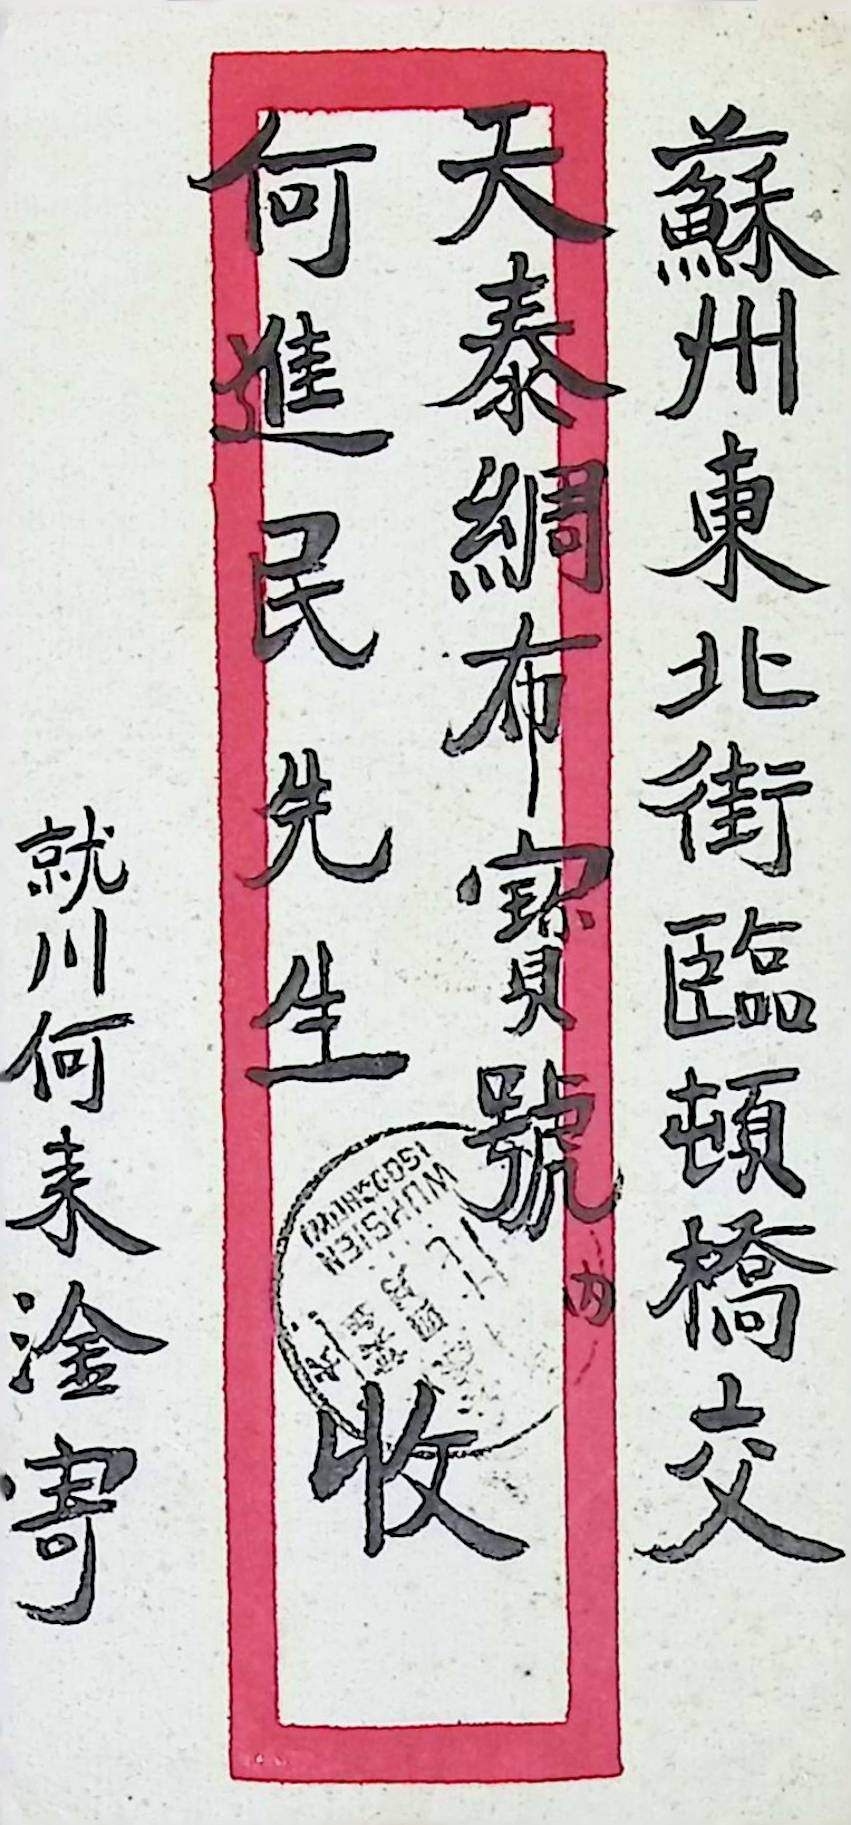 蘇州東北街臨頓橋交
天泰綢布寶號內
何進民先生
收
就川何来淦寄
WUHSIEN
(SOOCHOW)